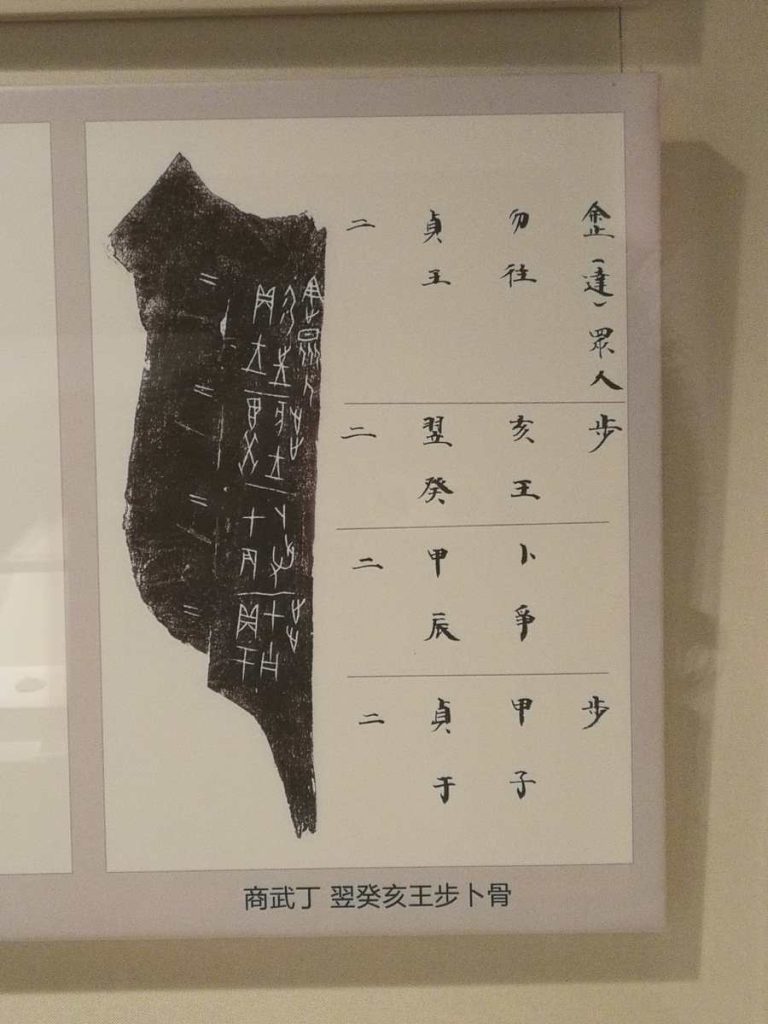 二
貞王
勿往
（達）眾人
二
翌癸
亥王
步
二
甲辰
卜爭
二
貞于
甲子
步
商武丁 翌癸亥王步卜骨